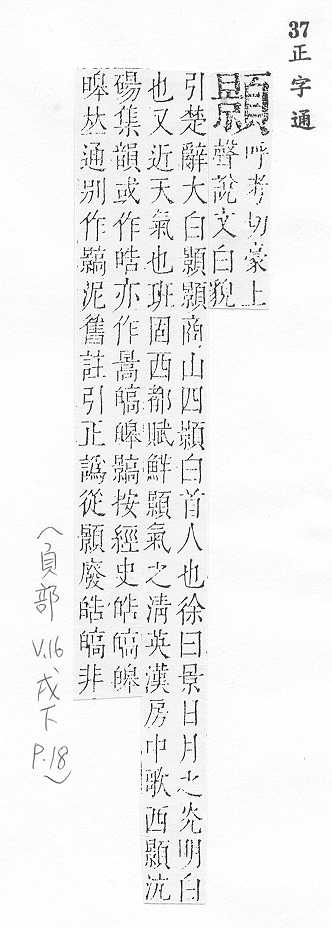 37正字通
顥 呼考切豪上
聲說文白貌
引楚辭大白顥顥商山四顥白首人也徐曰景日月之光明白
也又近天氣也班固西都賦鮮顥氣之清英漢房中歌西顥沆
碭集韻或作皓亦作暠皜皞䫧按經史皓皜皞
皞𠀤通別作䫧泥舊註引正譌從顥廢皓皜非
(頁部 V.16 戌下 P.18)